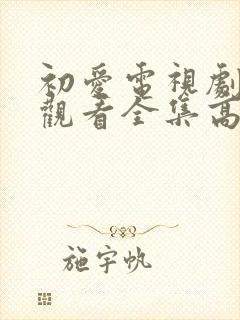 初愛電視劇
觀看全集高
施宇帆